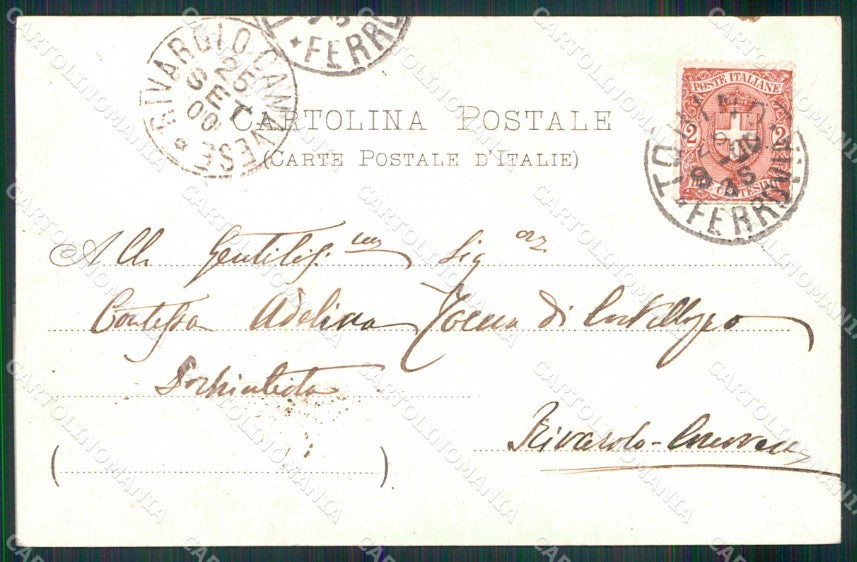 RIVAROLO CANAVESE
25
SET
00
FERR
CARTOLINA POSTALE
(CARTE POSTALE D'ITALIE)
POSTE ITALIANE
2 2
TORINO
FERROVIA
Alla Gentilis.ma Sig.ra
Contessa Adelina Tocca di Castellazzo
Rivarolo-Canavese
CARTOLINOMANIA